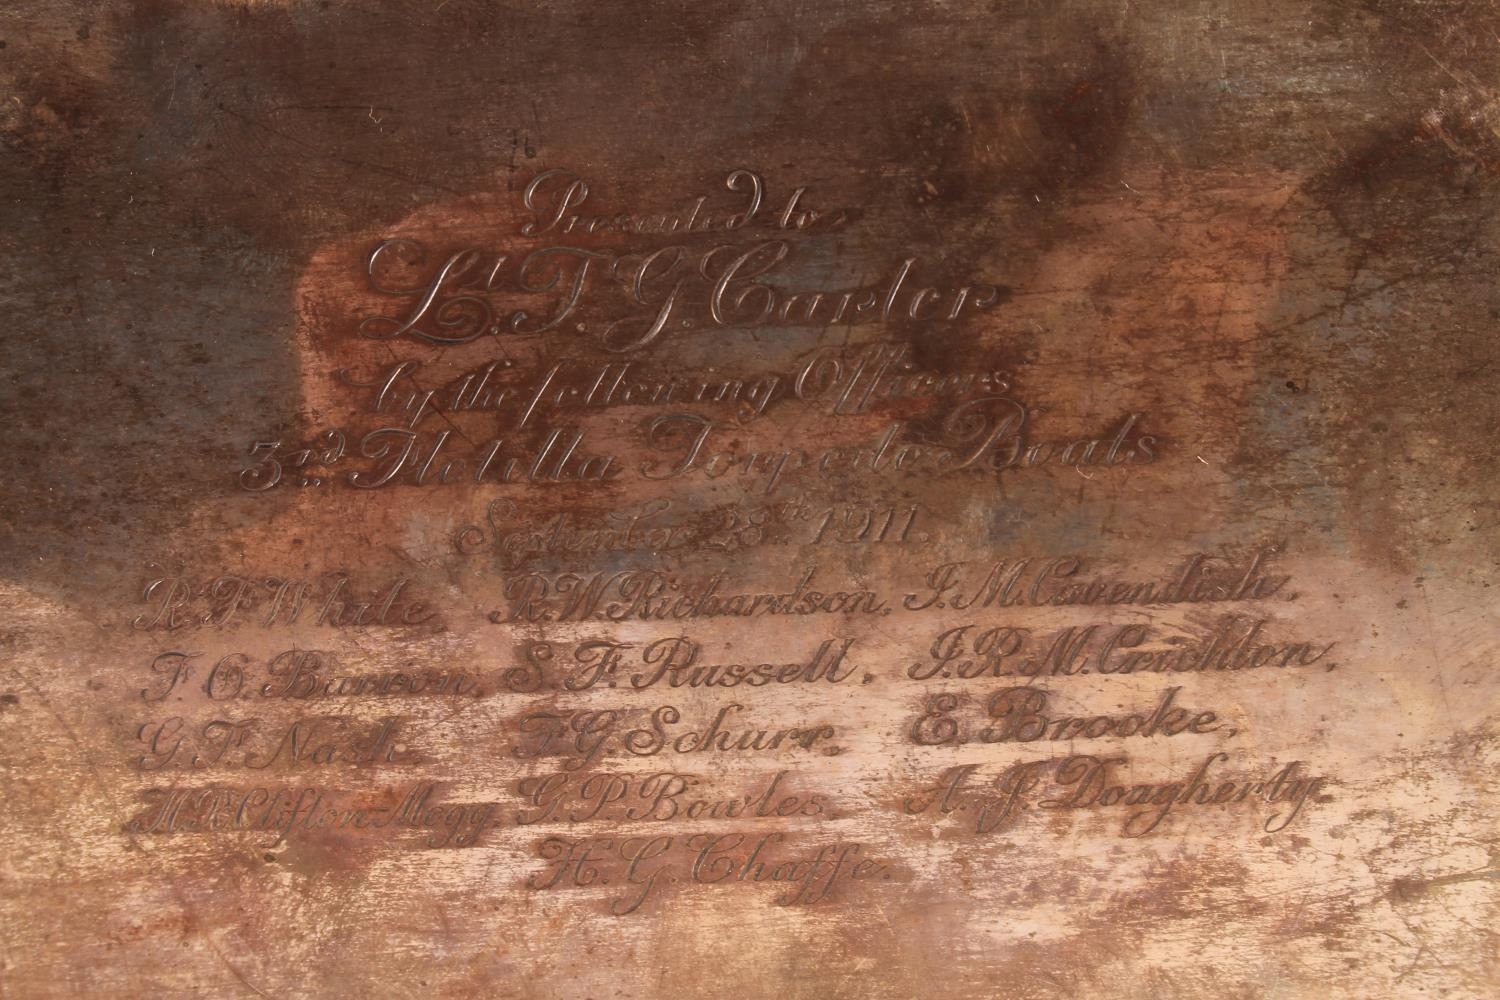 Presented to
Lt. T. G. Carter
by the following Officers
3rd. Flotilla Torpedo Boats
September 28th. 1911.
R. F. White, R. W. Richardson, J. M. Cavendish,
F. O. Barron, S. F. Russell, J. R. M. Crichton,
G. F. Nash, F. G. Schurr, E. Brooke,
Clifton-Mogg, G. P. Bowles, A. J. Doagherty,
H. G. Chaffe.